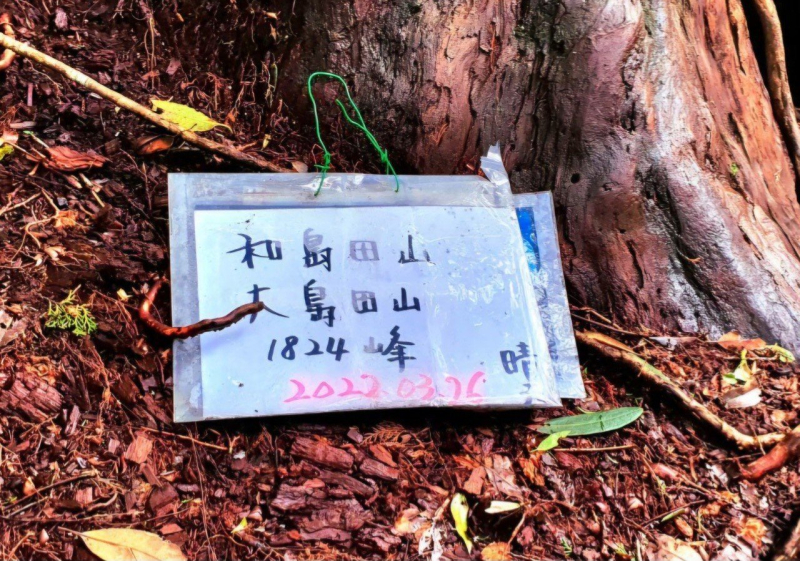 和島田山
大島田山
1824 山峰 晴
2022.03.26